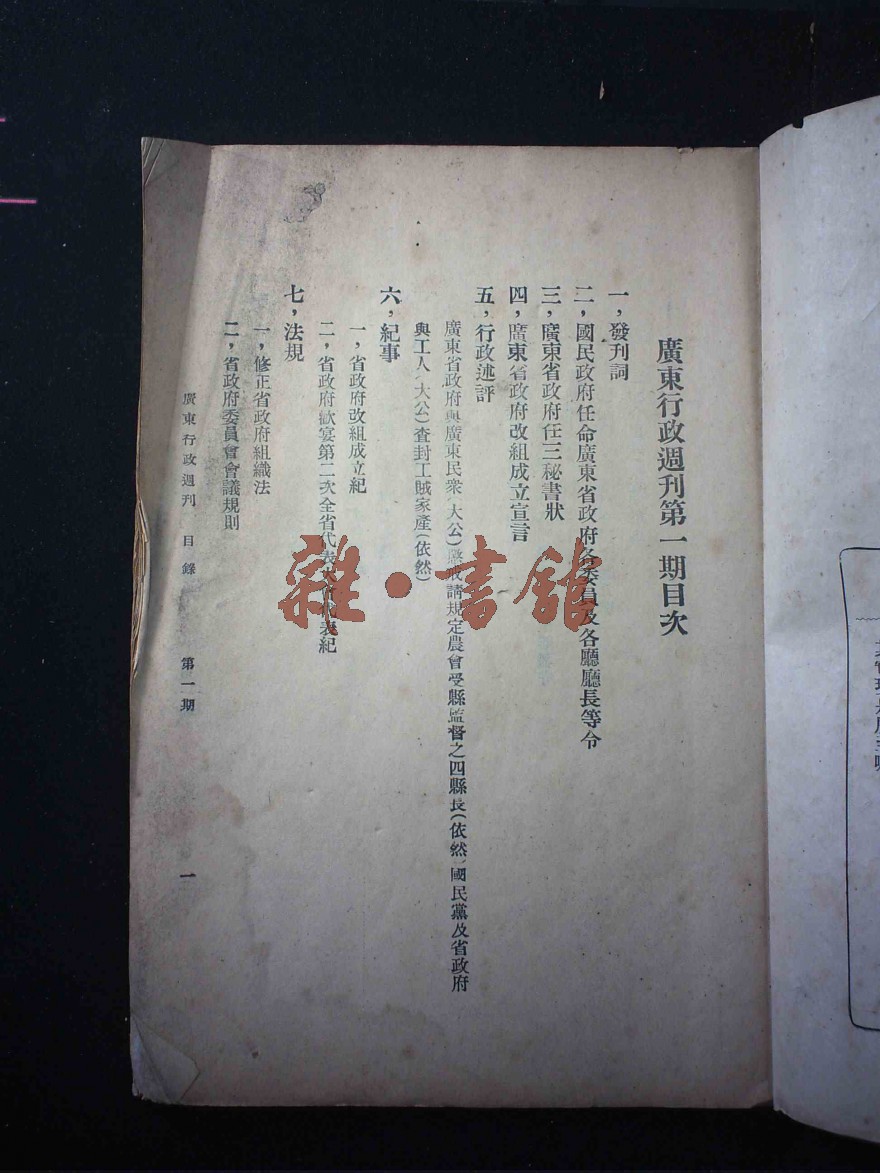 廣東行政週刊第一期目次
一，發刊詞
二，國民政府任命廣東省政府各委員及各廳廳長等令
三，廣東省政府任三秘書狀
四，廣東省政府改組成立宣言
五，行政述評
廣東省政府與廣東民衆（大公）懲戒請規定農會受縣監督之四縣長（依然）國民黨及省政府
與工人（大公）查封工賊家產（依然）
六，紀事
一，省政府改組成立紀
二，省政府歡宴第二次全省代表大會代表紀
七，法規
一，修正省政府組織法
二，省政府委員會會議規則
廣東行政週刊 目錄 第一期 一
雜·書館